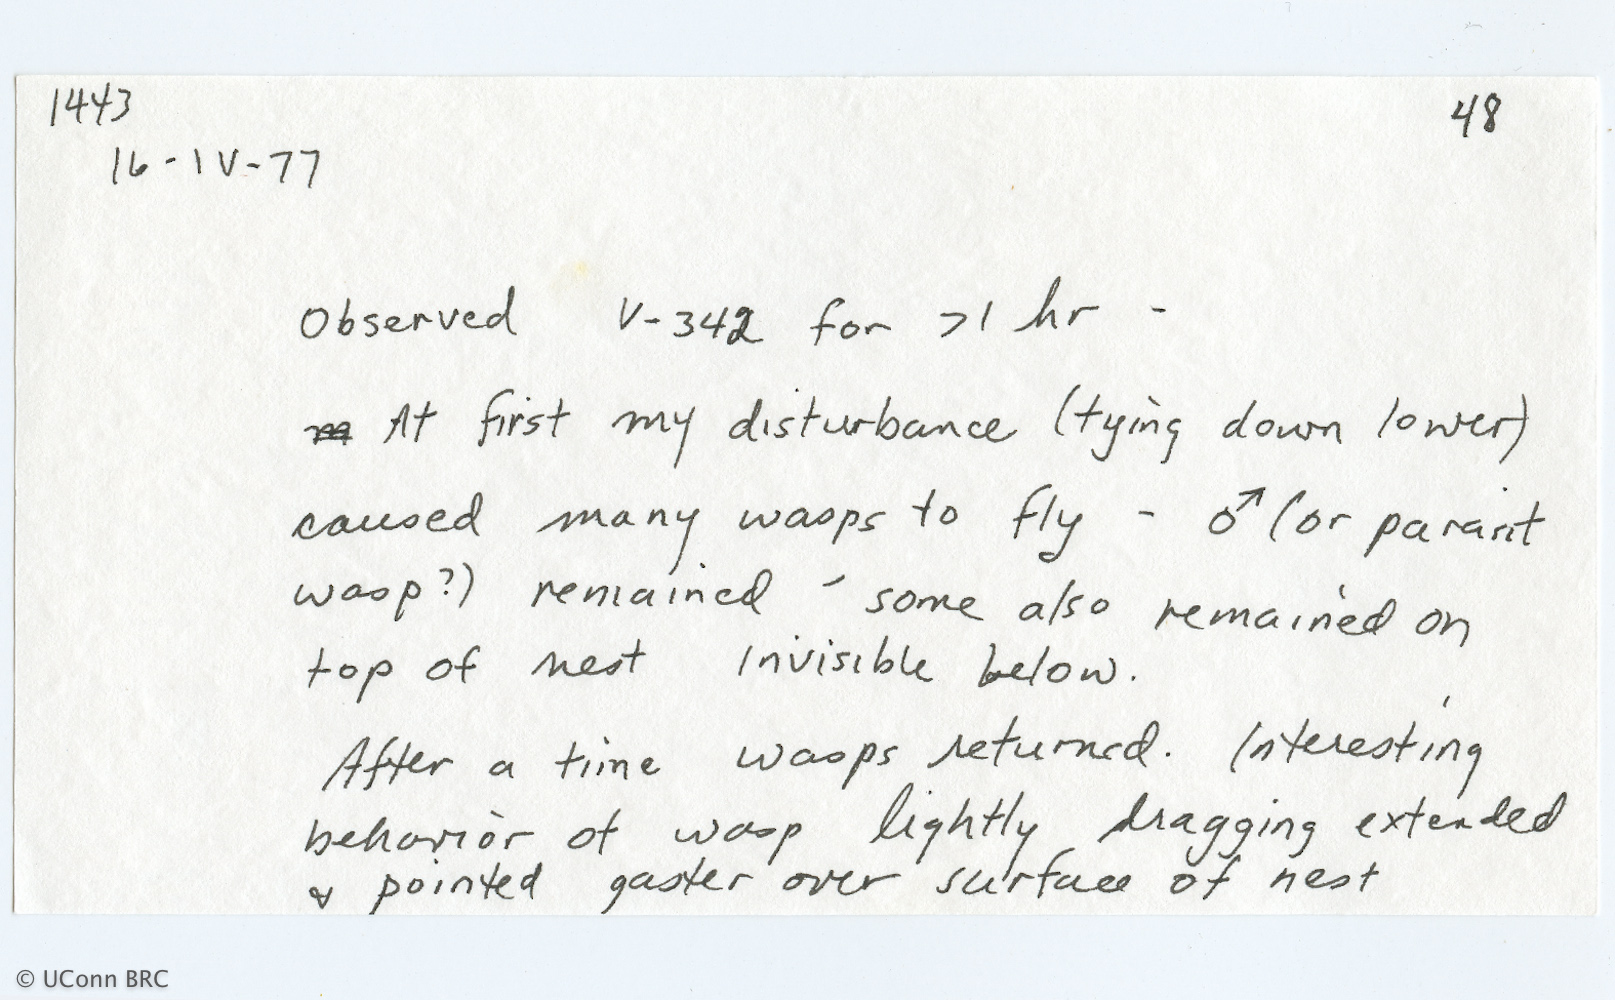 1443
48
16-IV-77
Observed V-342 for >1 hr -
At first my disturbance (tying down lower)
caused many wasps to fly - ♂ (or parasit
wasp?) remained - some also remained on
top of nest invisible below.
After a time wasps returned. Interesting
behavior of wasp lightly dragging extended
& pointed gaster over surface of nest
© UConn BRC